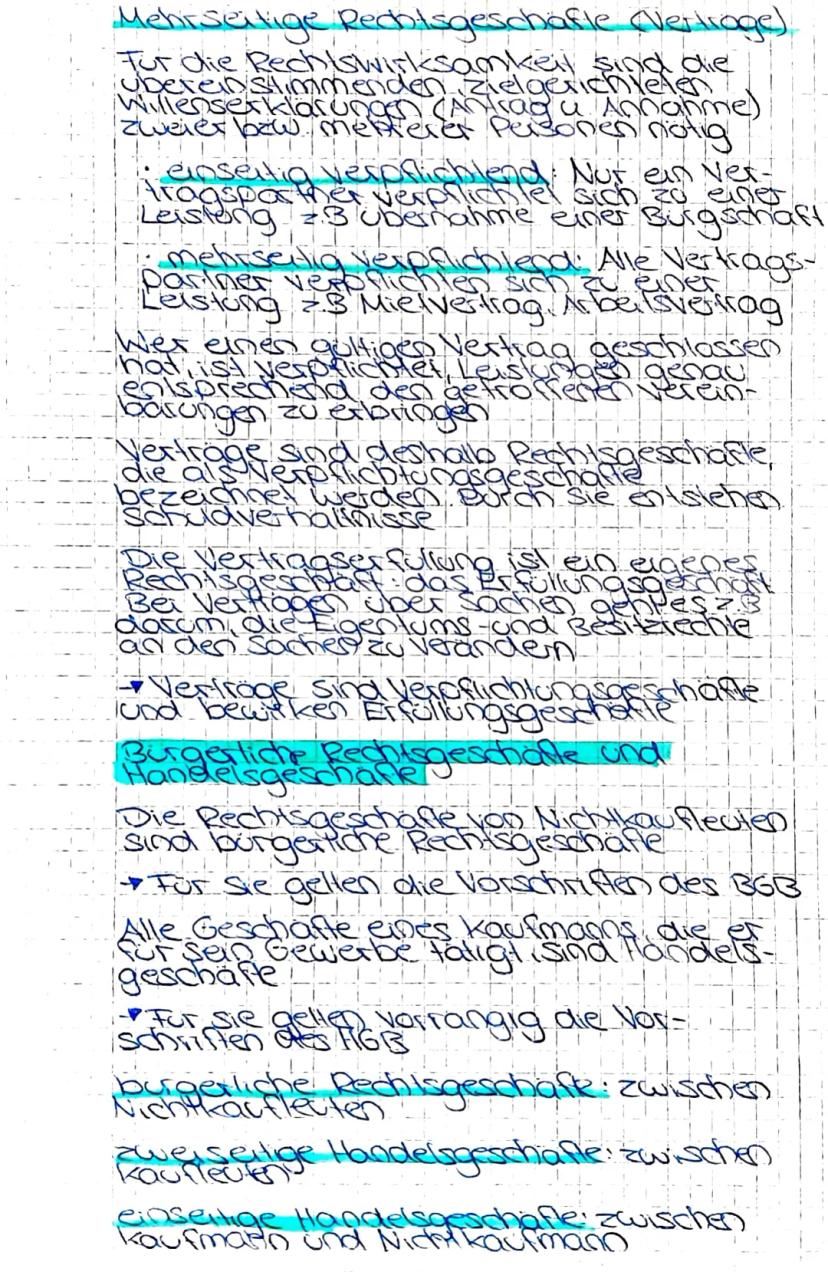 Mehrseitige Rechtsgeschäfte (Verträge)
Für die Rechtswirksamkeit sind die
übereinstimmenden, zielgerichteten
Willenserklärungen (Antrag u. Annahme)
zweier bzw. mehrerer Personen nötig
· einseitig verpflichtend: Nur ein Ver-
tragspartner verpflichtet sich zu einer
Leistung z.B Übernahme einer Bürgschaft
· mehrseitig verpflichtend: Alle Vertrags-
partner verpflichten sich zu einer
Leistung z.B Mietvertrag, Arbeitsvertrag
Wer einen gültigen Vertrag geschlossen
hat, ist verpflichtet, Leistungen genau
entsprechend den getroffenen Verein-
barungen zu erbringen
Verträge sind deshalb Rechtsgeschäfte,
die als Verpflichtungsgeschäfte
bezeichnet werden. Durch sie entstehen
Schuldverhältnisse
Die Vertragserfüllung ist ein eigenes
Rechtsgeschäft: das Erfüllungsgeschäft
Bei Verträgen über Sachen geht es z.B
darum, die Eigentums- und Besitzrechte
an den Sachen zu verändern
→ Verträge sind Verpflichtungsgeschäfte
und bewirken Erfüllungsgeschäfte
Bürgerliche Rechtsgeschäfte und
Handelsgeschäfte
Die Rechtsgeschäfte von Nichtkaufleuten
sind bürgerliche Rechtsgeschäfte
→ Für sie gelten die Vorschriften des BGB
Alle Geschäfte eines Kaufmanns, die er
für sein Gewerbe tätigt, sind Handels-
geschäfte
→ Für sie gelten vorrangig die Vor-
schriften des HGB
bürgerliche Rechtsgeschäfte: zwischen
Nichtkaufleuten
zweiseitige Handelsgeschäfte: zwischen
Kaufleuten
einseitige Handelsgeschäfte: zwischen
Kaufmann und Nichtkaufmann